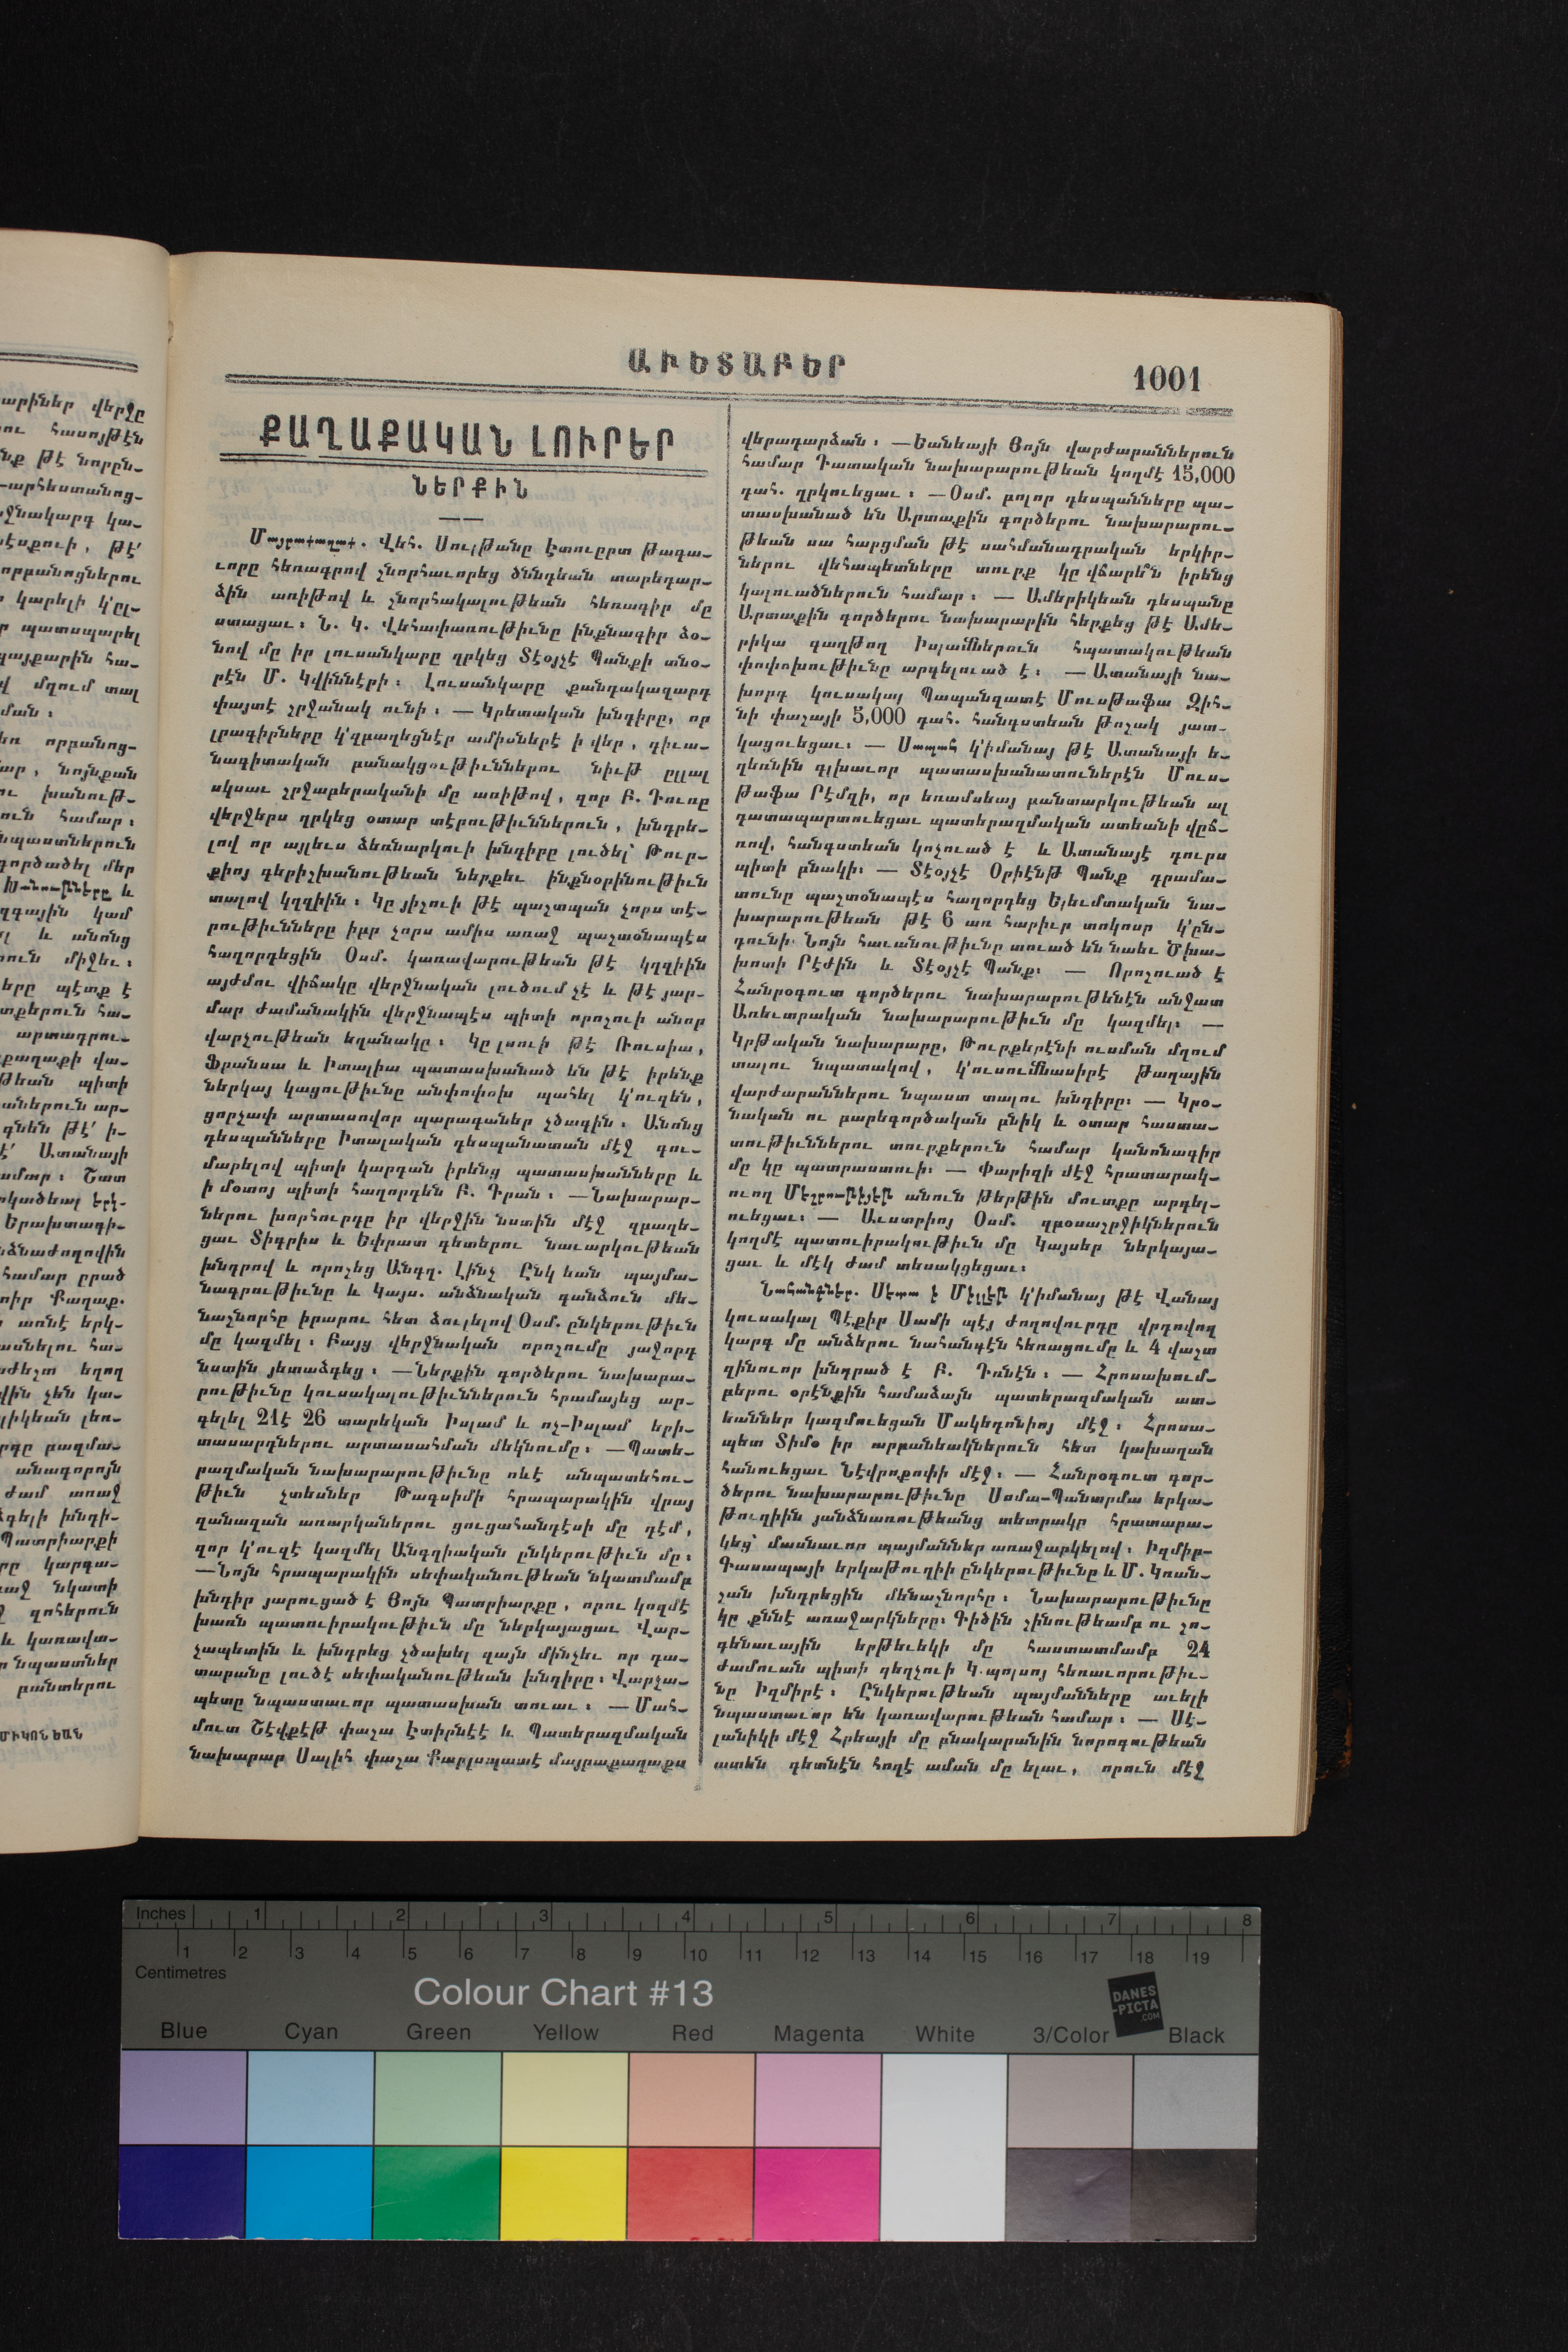 ԱՒԵՏԱԲԵՐ
1001
ՔԱՂԱՔԱԿԱՆ ԼՈՒՐԵՐ
ՆԵՐՔԻՆ
Մայրաքաղաք. Վեհ. Սուլթանը Էտուըրտ թագա-
ւորը հեռագրով շնորհաւորեց ծննդեան տարեդար-
ձին առիթով և շնորհակալութեան հեռագիր մը
ստացաւ։ Ն. Կ. Վեհափառութիւնը ինքնագիր ձօ-
նով մը իր լուսանկարը ղրկեց Տէօյչէ Պանքի տնօ-
րէն Մ. Կվիննէրի։ Լուսանկարը քանդակազարդ
փայտէ շրջանակ ունի։ — Կրետական խնդիրը, որ
լրագիրները կ'զբաղեցնէր ամիսներէ ի վեր, դիւա-
նագիտական բանակցութիւններու նիւթ ըլլալ
սկսաւ շրջաբերականի մը առիթով, զոր Բ. Դուռը
վերջերս ղրկեց օտար տէրութիւններուն, խնդրե-
լով որ այլեւս ձեռնարկուի խնդիրը լուծել՝ Թուր-
քիոյ գերիշխանութեան ներքեւ ինքնօրինութիւն
տալով կղզիին։ Կը յիշուի թէ պաշտպան չորս տէ-
րութիւնները իբր չորս ամիս առաջ պաշտօնապէս
հաղորդեցին Օսմ. կառավարութեան թէ կղզիին
այժմու վիճակը վերջնական լուծում չէ և թէ յար-
մար ժամանակին վերջնապէս պիտի որոշուի անոր
վարչութեան եղանակը։ Կը լսուի թէ Ռուսիա,
Ֆրանսա և Իտալիա պատասխանած են թէ իրենք
ներկայ կացութիւնը անփոփոխ պահել կ'ուզեն,
ցորչափ արտասովոր պարագաներ չծագին։ Անոնց
դեսպանները Իտալական դեսպանատան մէջ գու-
մարելով պիտի կարդան իրենց պատասխանները և
ի մօտոյ պիտի հաղորդեն Բ. Դրան։ — Նախարար-
ներու խորհուրդը իր վերջին նստին մէջ զբաղե-
ցաւ Տիգրիս և Եփրատ գետերու նաւարկութեան
խնդրով և որոշեց Անգղ. Լինչ Ընկ եան պայմա-
նագրութիւնը և Կայս. անձնական գանձուն մե-
նաշնորհը իրարու հետ ձուլելով Օսմ. ընկերութիւն
մը կազմել։ Բայց վերջնական որոշումը յաջորդ
նստին յետաձգեց։ — Ներքին գործերու նախարա-
րութիւնը կուսակալութիւններուն հրամայեց ար-
գելել 21է 26 տարեկան Իսլամ և ոչ-Իսլամ երի-
տասարդներու արտասահման մեկնումը։ — Պատե-
րազմական նախարարութիւնը ոևէ անպատեհու-
թիւն չտեսներ Թագսիմի հրապարակին վրայ
զանազան առարկաներու ցուցահանդէսի մը դէմ,
զոր կ'ուզէ կազմել Անգղիական ընկերութիւն մը։
— Նոյն հրապարակին սեփականութեան նկատմամբ
խնդիր յարուցած է Յոյն Պատրիարքը, որու կողմէ
խառն պատուիրակութիւն մը ներկայացաւ Վար-
չապետին և խնդրեց չծախել զայն մինչեւ որ դա-
տարանը լուծէ սեփականութեան խնդիրը։ Վարչա-
պետը նպաստաւոր պատասխան տուաւ։ — Մահ-
մուտ Շէվքէթ փաշա Էտիրնէէ և Պատերազմական
նախարար Սալիհ փաշա Քարլսպատէ մայրաքաղաքս
վերադարձան։ — Եանեայի Յոյն վարժարաններուն
համար Դատական նախարարութեան կողմէ 15,000
դահ. ղրկուեցաւ։ — Օսմ. բոլոր դեսպանները պա-
տասխանած են Արտաքին գործերու նախարարու-
թեան սա հարցման թէ սահմանադրական երկիր-
ներու վեհապետները տուրք կը վճարե՞ն իրենց
կալուածներուն համար։ — Ամերիկեան դեսպանը
Արտաքին գործերու նախարարին հերքեց թէ Ամե-
րիկա գաղթող Իսլամներուն հպատակութեան
փոփոխութիւնը արգելուած է։ — Ատանայի նա-
խորդ կուսակալ Պապանզատէ Մուսթաֆա Զիհ-
նի փաշայի 5,000 դահ. հանգստեան թոշակ յատ-
կացուեցաւ։ — Սապահ կ'իմանայ թէ Ատանայի ե-
ղեռնին գլխաւոր պատասխանատուներէն Մուս-
թաֆա Րէմզի, որ եռամսեայ բանտարկութեան ալ
դատապարտուեցաւ պատերազմական ատեանի վըճ-
ռով, հանգստեան կոչուած է և Ատանայէ դուրս
պիտի բնակի։ — Տէօյչէ Օրիէնթ Պանք դրամա-
տունը պաշտօնապէս հաղորդեց Ելեւմտական նա-
խարարութեան թէ 6 առ հարիւր տոկոսը կ'ըն-
դունի։ Նոյն հաւանութիւնը տուած են նաեւ Ծխա-
խոտի Րէժին և Տէօյչէ Պանք։ — Որոշուած է
Հանրօգուտ գործերու նախարարութենէն անջատ
Առեւտրական նախարարութիւն մը կազմել։ —
Կրթական նախարարը, Թուրքերէնի ուսման մղում
տալու նպատակով, կ'ուսումնասիրէ Թաղային
վարժարաններու նպաստ տալու խնդիրը։ — Կրօ-
նական ու բարեգործական բնիկ և օտար հաստա-
տութիւններու տուրքերուն համար կանոնագիր
մը կը պատրաստուի։ — Փարիզի մէջ հրատարակ-
ուող Մեշրութիյէթ անուն թերթին մուտքը արգել-
ուեցաւ։ — Աւստրիոյ Օսմ. զբօսաշրջիկներուն
կողմէ պատուիրակութիւն մը Կայսեր ներկայա-
ցաւ և մէկ ժամ տեսակցեցաւ։
Նահանգներ. Սետա ի Միլլէթ կ'իմանայ թէ Վանայ
կուսակալ Պէքիր Սամի պէյ ժողովուրդը վրդովող
կարգ մը անձերու նահանգէն հեռացումը և 4 վաշտ
զինուոր խնդրած է Բ. Դռնէն։ — Հրոսախում-
բերու օրէնքին համաձայն պատերազմական ատ-
եաններ կազմուեցան Մակեդոնիոյ մէջ։ Հրոսա-
պետ Տիմօ իր արբանեակներուն հետ կախաղան
հանուեցաւ Նէվրոքոփի մէջ։ — Հանրօգուտ գոր-
ծերու նախարարութիւնը Սոմա-Պանտրմա երկա-
թուղիին յանձնառութեանց տետրակը հրատարա-
կեց՝ մասնաւոր պայմաններ առաջարկելով։ Իզմիր-
Գասապայի երկաթուղիի ընկերութիւնը և Մ. Կռան-
շան խնդրեցին մենաշնորհը։ Նախարարութիւնը
կը քննէ առաջարկները։ Գիծին շինութեամբ ու շո-
գենաւային երթեւեկի մը հաստատմամբ 24
ժամուան պիտի զեղչուի Կ. պոլսոյ հեռաւորութիւ-
նը Իզմիրէ։ Ընկերութեան պայմանները աւելի
նպաստաւոր են կառավարութեան համար։ — Սէ-
լանիկի մէջ Հրեայի մը բնակարանին նորոգութեան
ատեն գետնէն հողէ աման մը ելաւ, որուն մէջ
Inches 1 2 3 4 5 6 7 8
1 2 3 4 5 6 7 8 9 10 11 12 13 14 15 16 17 18 19
Centimetres
Colour Chart #13
DANES
-PICTA
.COM
Blue Cyan Green Yellow Red Magenta White 3/Color Black